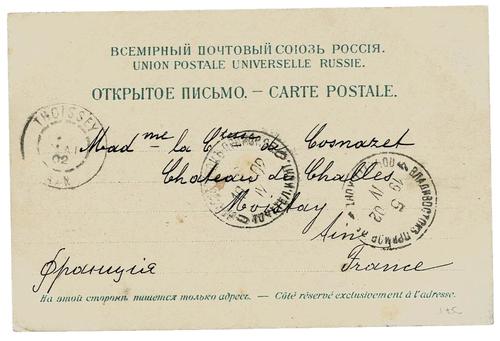 ВСЕМІРНЫЙ ПОЧТОВЫЙ СОЮЗЪ РОССІЯ.
UNION POSTALE UNIVERSELLE RUSSIE.
ОТКРЫТОЕ ПИСЬМО. – CARTE POSTALE.
THOISSEY
02
AIN
Madme la Ctesse de Cosnazet
Chateau de Challes
Ain
France
Франція
ВЛАДИВОСТОКЪ ПРИМОР. ОБ.
19 5
IV 02
На этой сторонѣ пишется только адресъ. – Côté réservé exclusivement à l'adresse.